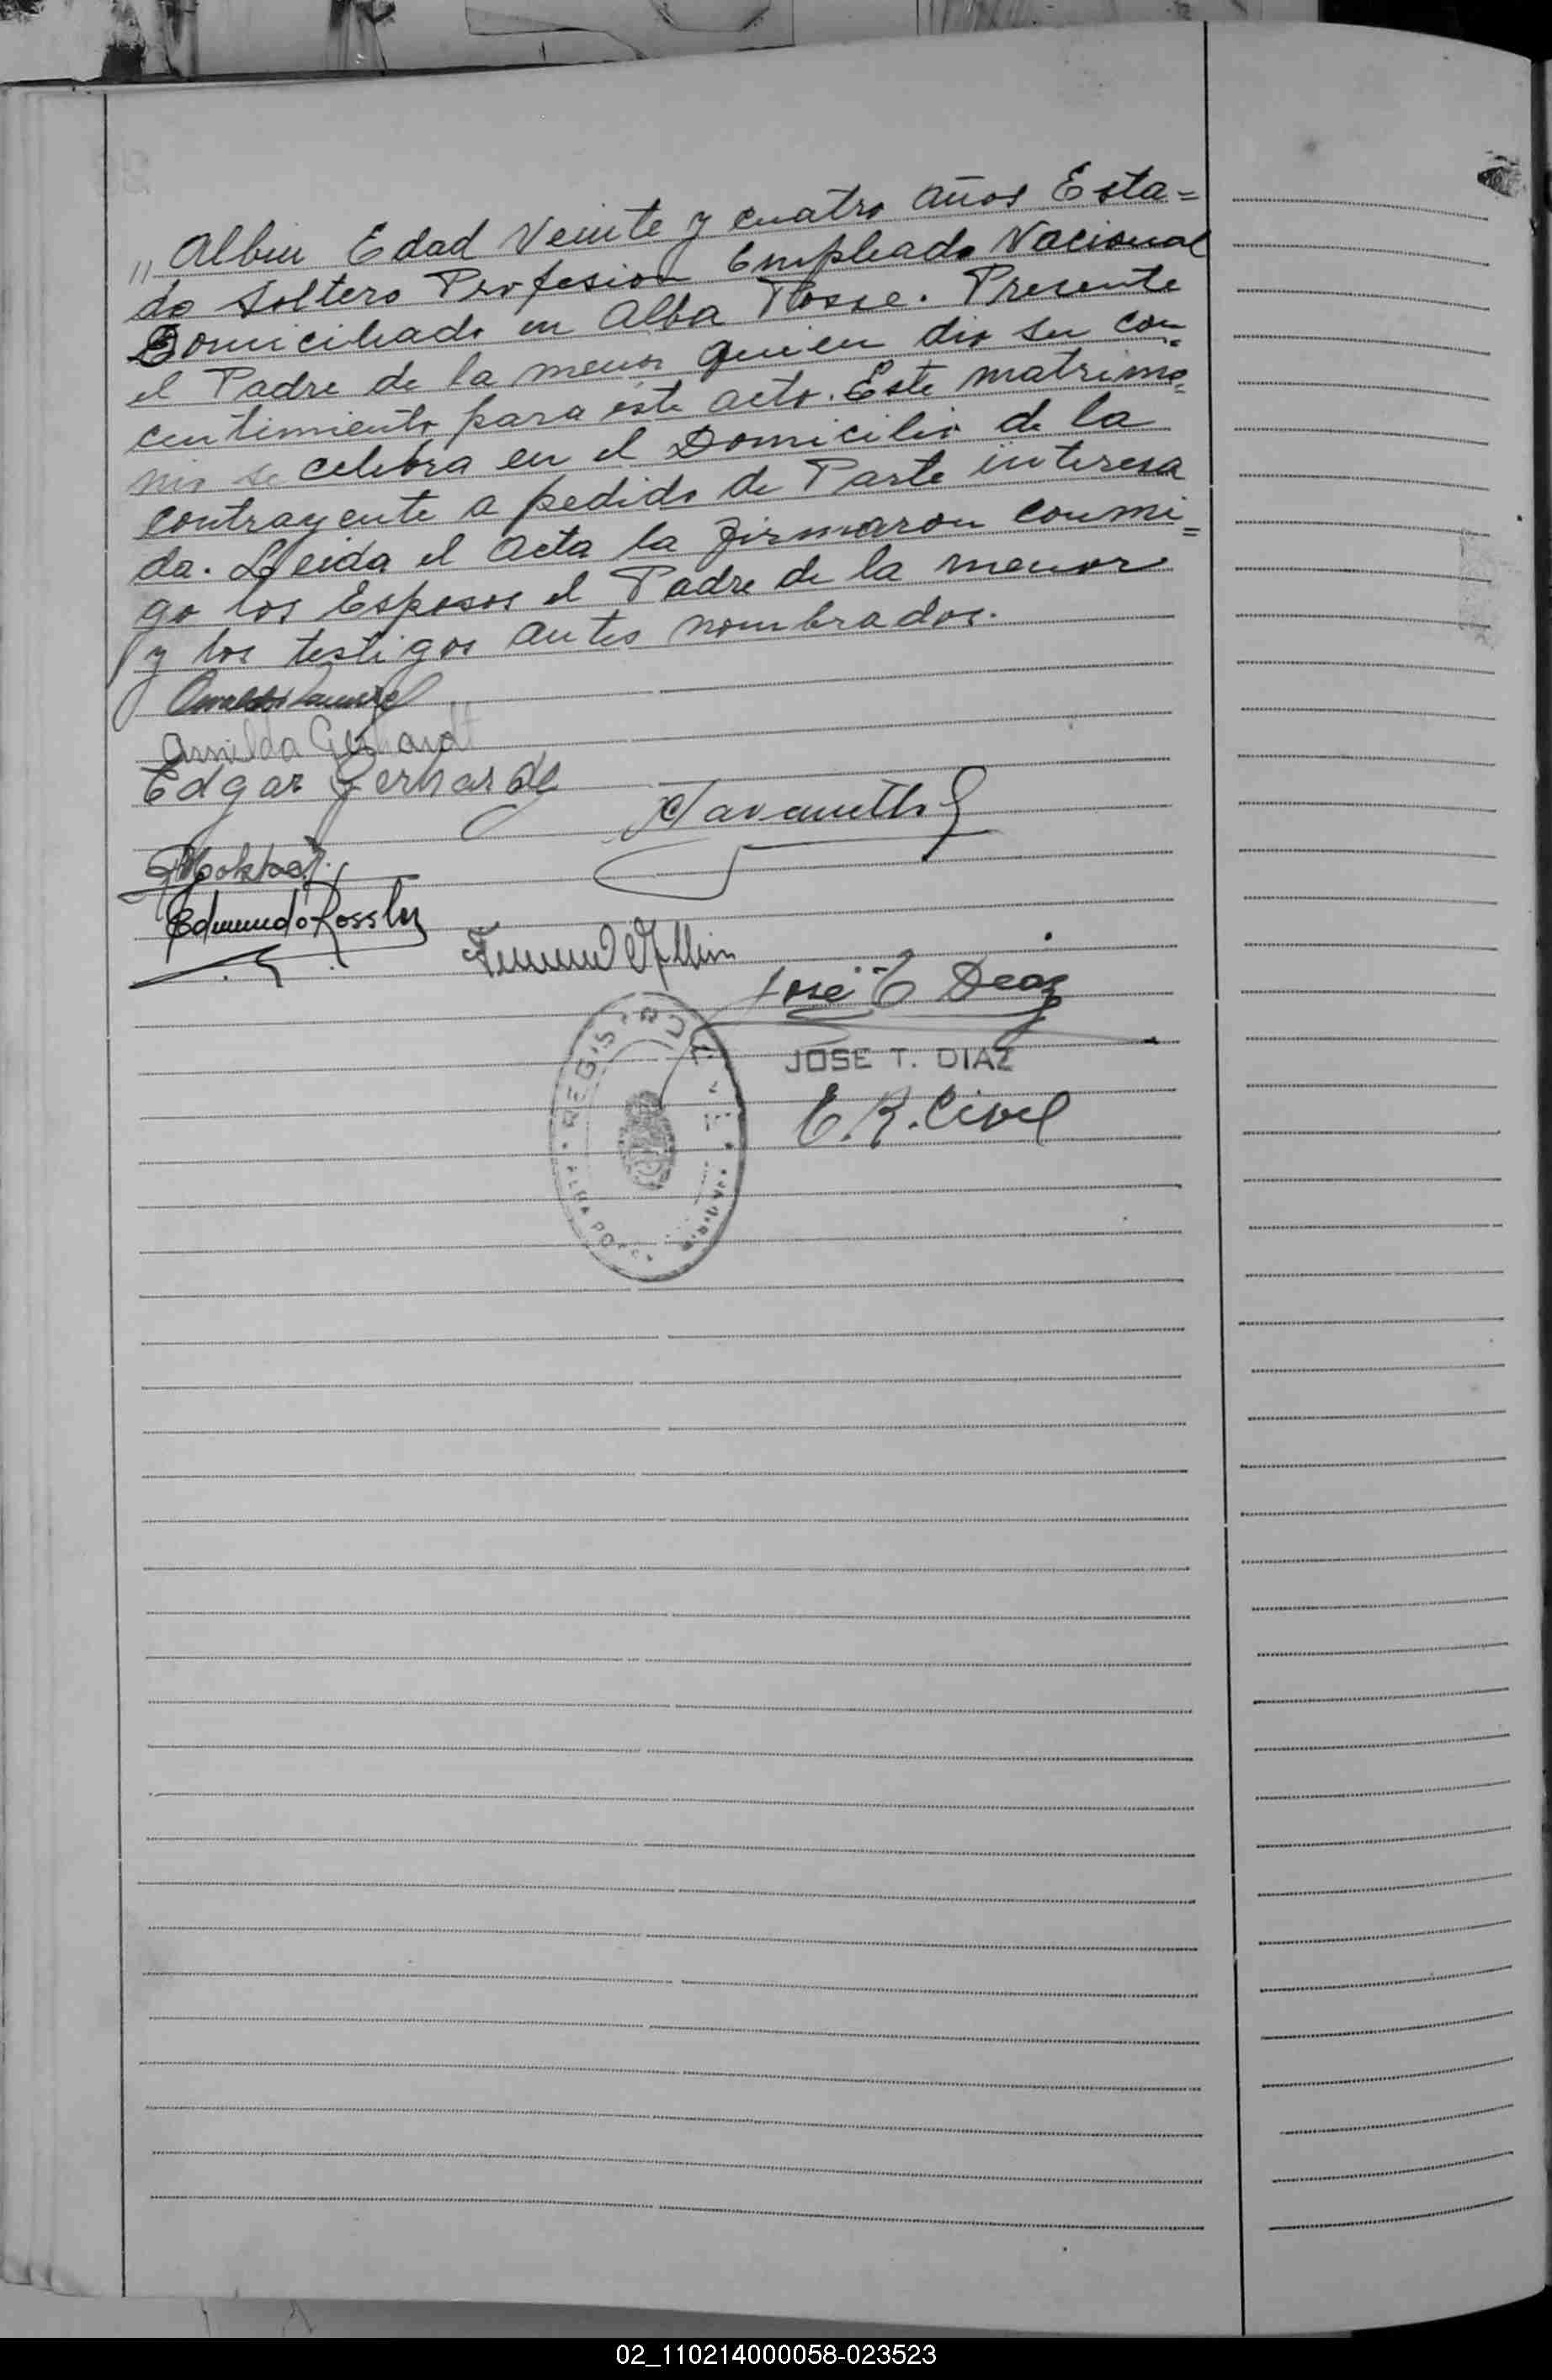 " Albin Edad Veinte y cuatro años Esta=
do Soltero Profesion Empleado Nacional
Domiciliado en Alba Posse. Presente
el Padre de la menor quien dio su con=
centimiento para este acto. Este matrimo=
nio se celebra en el Domicilio de la
contrayente a pedido de Parte interesa
da. Leida el acta la firmaron conmi=
go los Esposos el Padre de la menor
y los testigos antes nombrados.
Osvaldo
Arnilda Gerhardt
Edgar Gerhardt
Edmundo Rossler
Albin
José T Diaz
JOSE T. DIAZ
E. R. Civil
REGISTRO CIVIL
ALBA POSSE
02_110214000058-023523